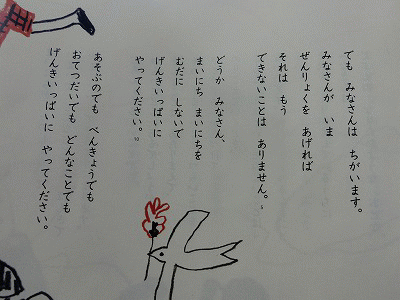 でも みなさんは ちがいます。
みなさんが いま
ぜんりょくを あげれば
それは もう
できないことは ありません。
どうか みなさん、
まいにち まいにちを
むだに しないで
げんきいっぱいに
やってください。
あそぶのでも べんきょうでも
おてつだいでも どんなことでも
げんきいっぱいに やってください。